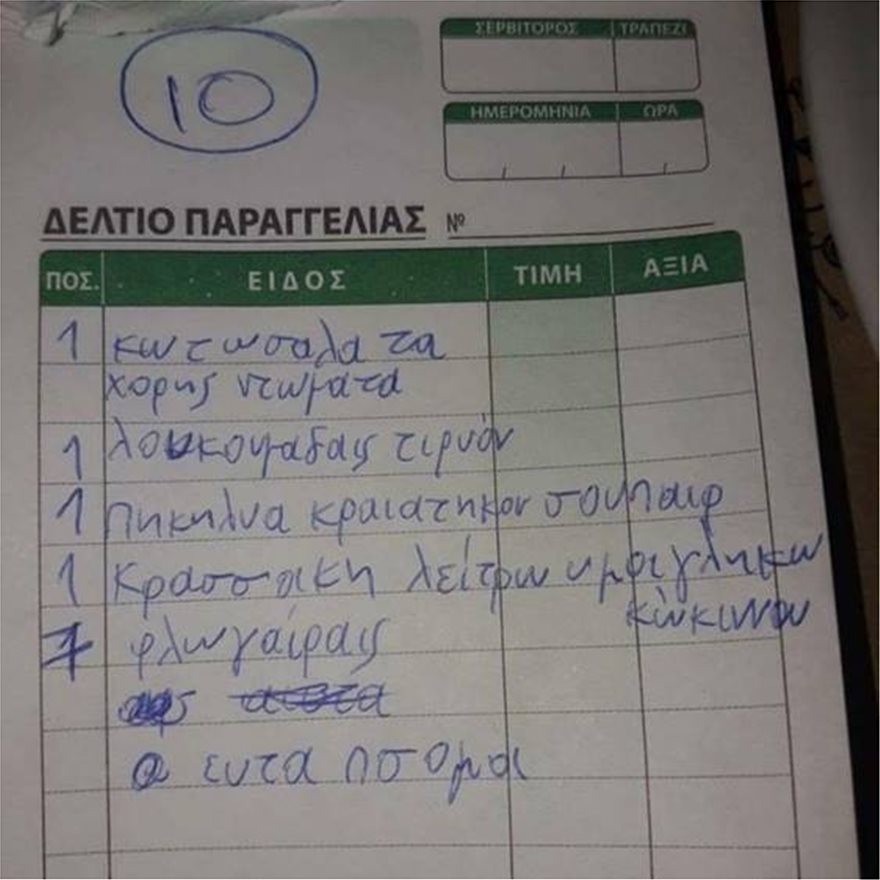 10
ΣΕΡΒΙΤΟΡΟΣ ΤΡΑΠΕΖΙ
ΗΜΕΡΟΜΗΝΙΑ ΩΡΑ
ΔΕΛΤΙΟ ΠΑΡΑΓΓΕΛΙΑΣ №
ΠΟΣ. ΕΙΔΟΣ ΤΙΜΗ ΑΞΙΑ
1 κωτωσαλατα
χορης ντωματα
1 λουκουμαδαις τιρυόν
1 πηκηλυα κραιατηκον σουπαιρ
1 Κρασσακη λείτρω ημφιγληκω
κώκινου
1 φλωγαίραις